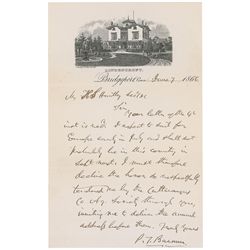 LINDENCROFT.
Bridgeport Conn. June 7 1866
My H S Huntly
Sir
Your letter of the 4th
inst is recd. I expect to sail for
Europe early in July and shall not
probably be in this country in
Sept next. I must therefore
decline the honor so respectfully
tendered me by the Cattaraugus
Co Ag. Society through you,
inviting me to deliver the annual
address before them. Truly Yours
P. T. Barnum